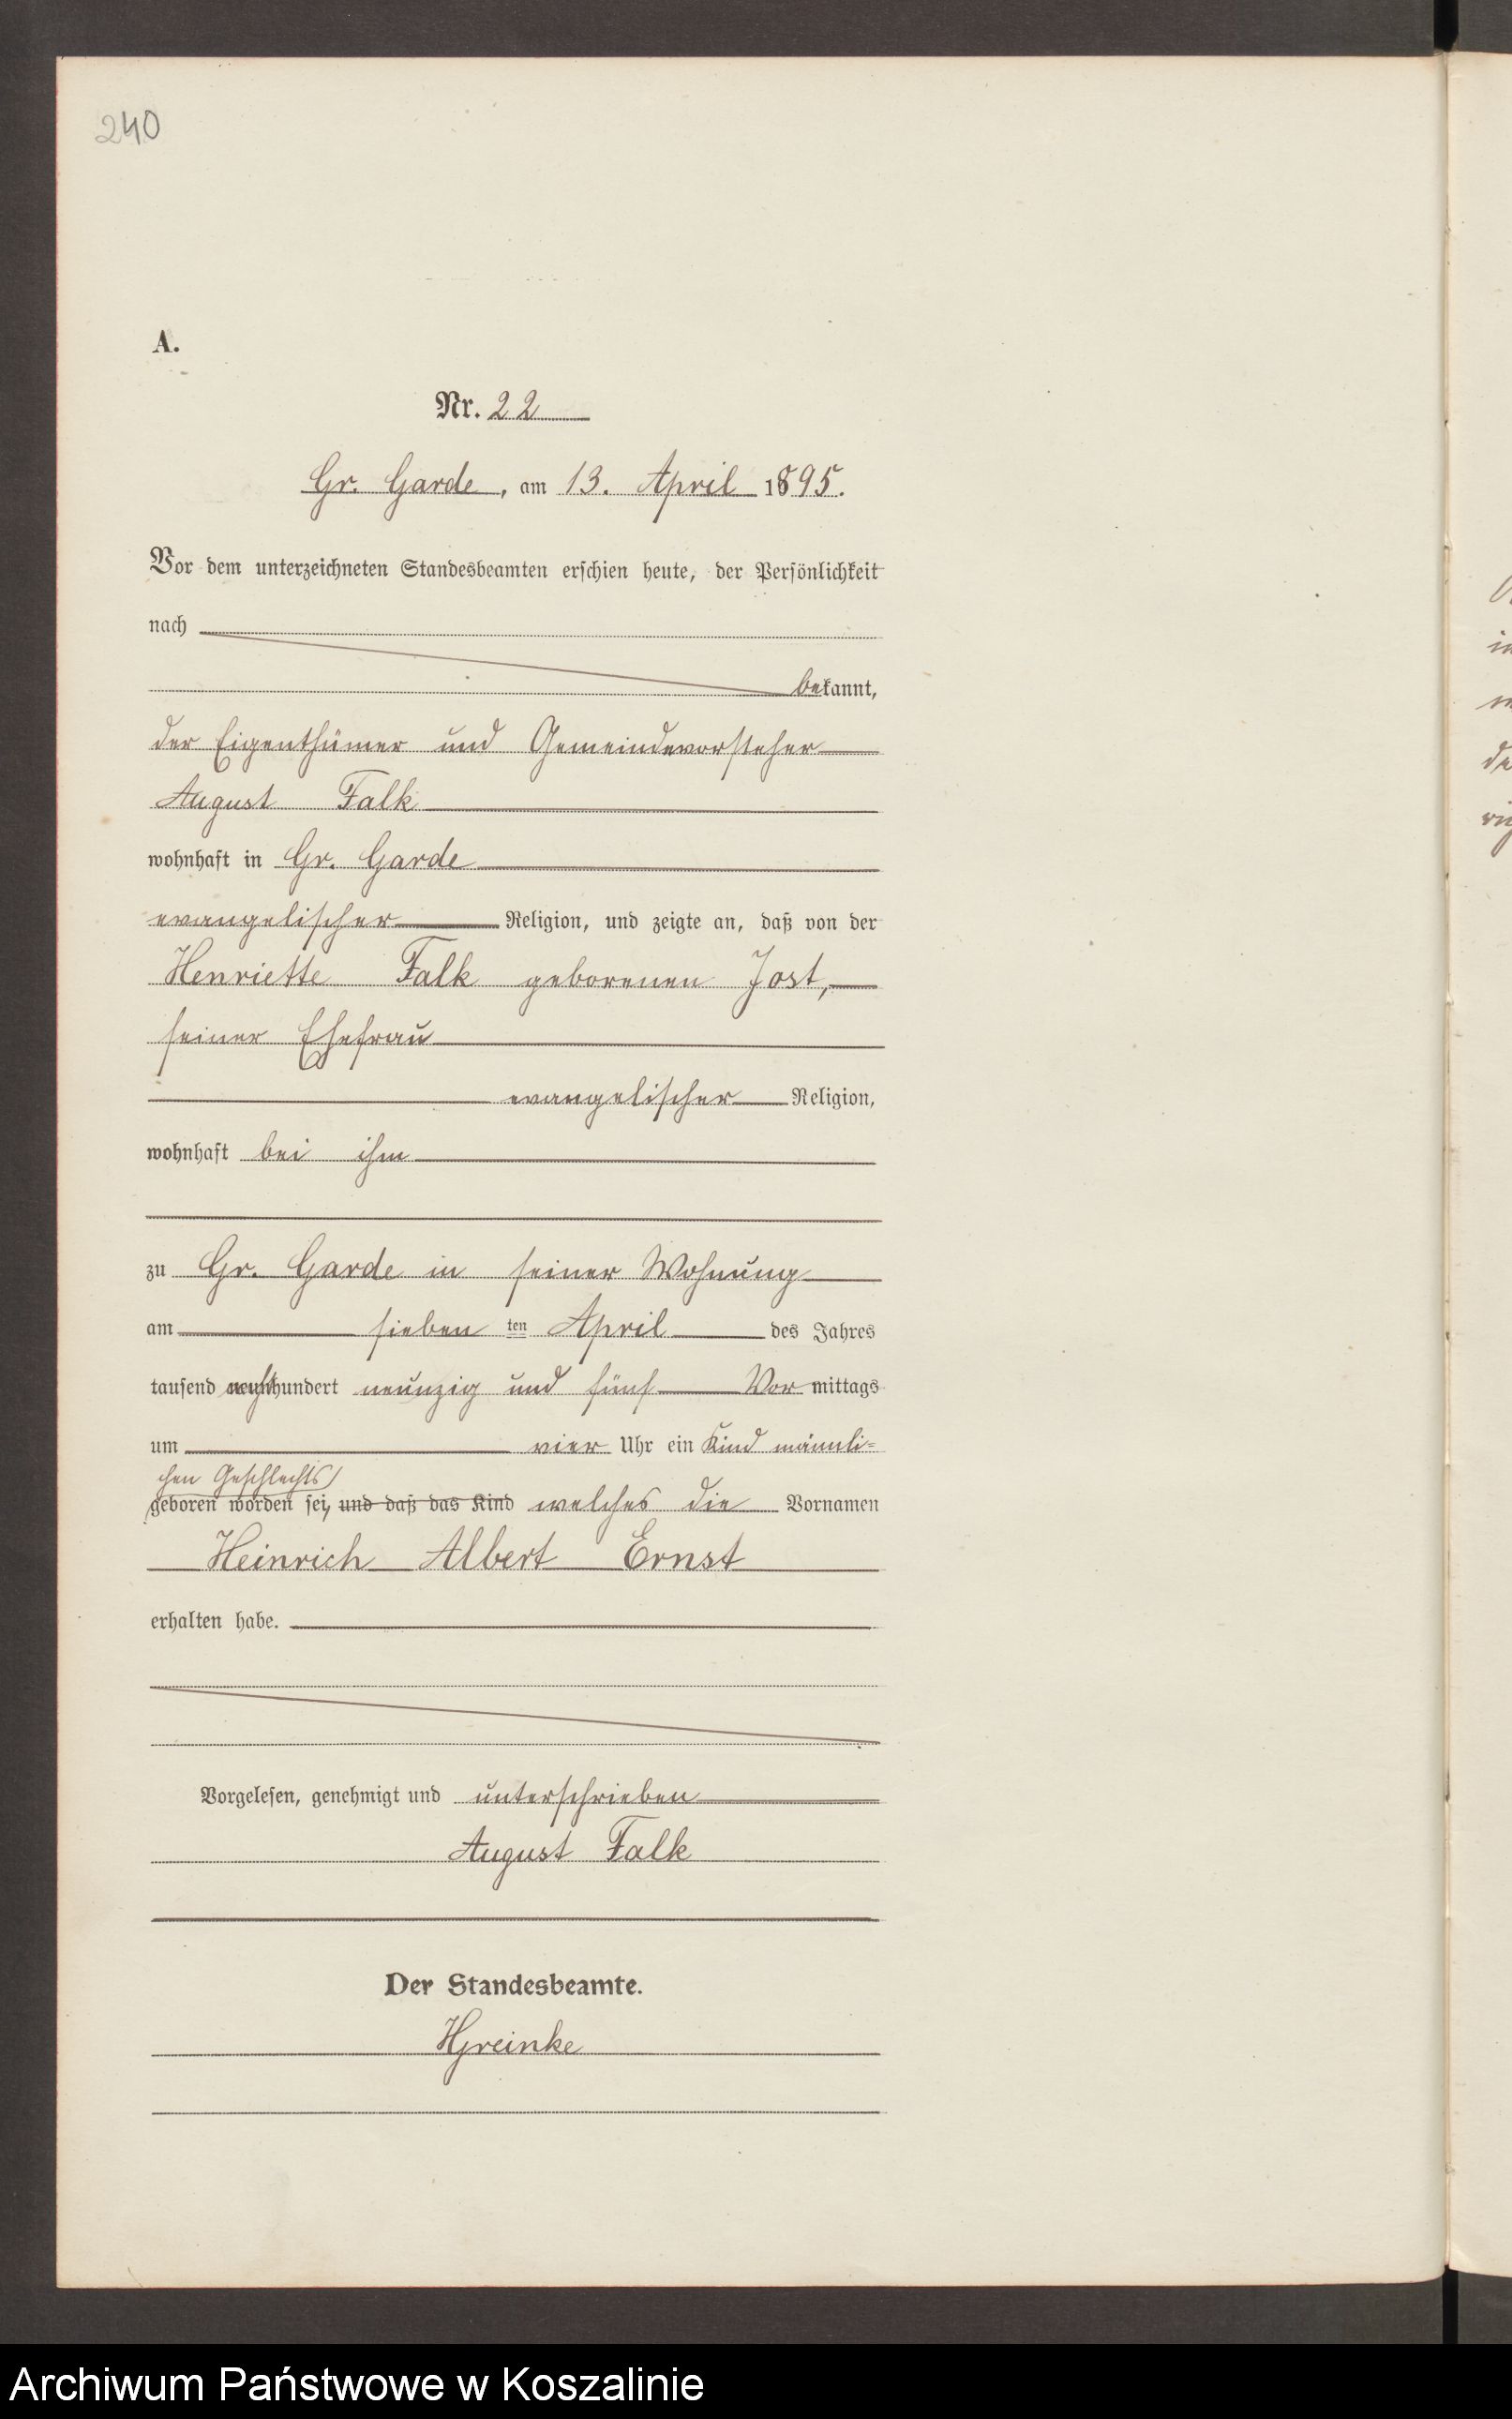 240
A.
Nr. 22
Gr. Garde, am 13. April 1895.
Vor dem unterzeichneten Standesbeamten erschien heute, der Persönlichkeit
nach
bekannt,
der Eigenthümer und Gemeindevorsteher
August Falk
wohnhaft in Gr. Garde
evangelischer Religion, und zeigte an, daß von der
Henriette Falk geborenen Jost,
seiner Ehefrau
evangelischer Religion,
wohnhaft bei ihm
zu Gr. Garde in seiner Wohnung
am sieben ten April des Jahres
tausend achthundert neunzig und fünf Vor mittags
um vier Uhr ein Kind männli=
chen Geschlechts
geboren worden sei, und daß das Kind welches die Vornamen
Heinrich Albert Ernst
erhalten habe.
Vorgelesen, genehmigt und unterschrieben
August Falk
Der Standesbeamte.
Archiwum Państwowe w Koszalinie